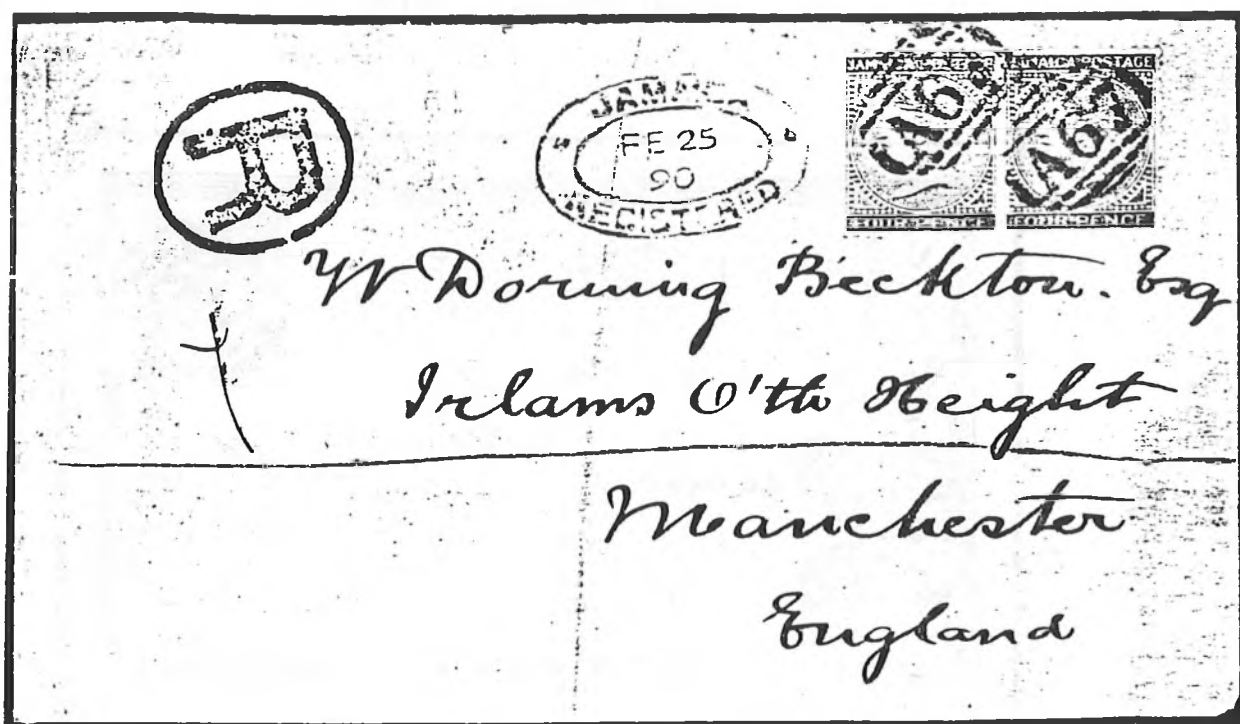 R
JAMAICA
FE 25
90
REGISTERED
JAMAICA POSTAGE
A6
FOUR PENCE
JAMAICA POSTAGE
A67
FOUR PENCE
W Dorning Beckton. Esq
Irlams O'th Height
Manchester
England